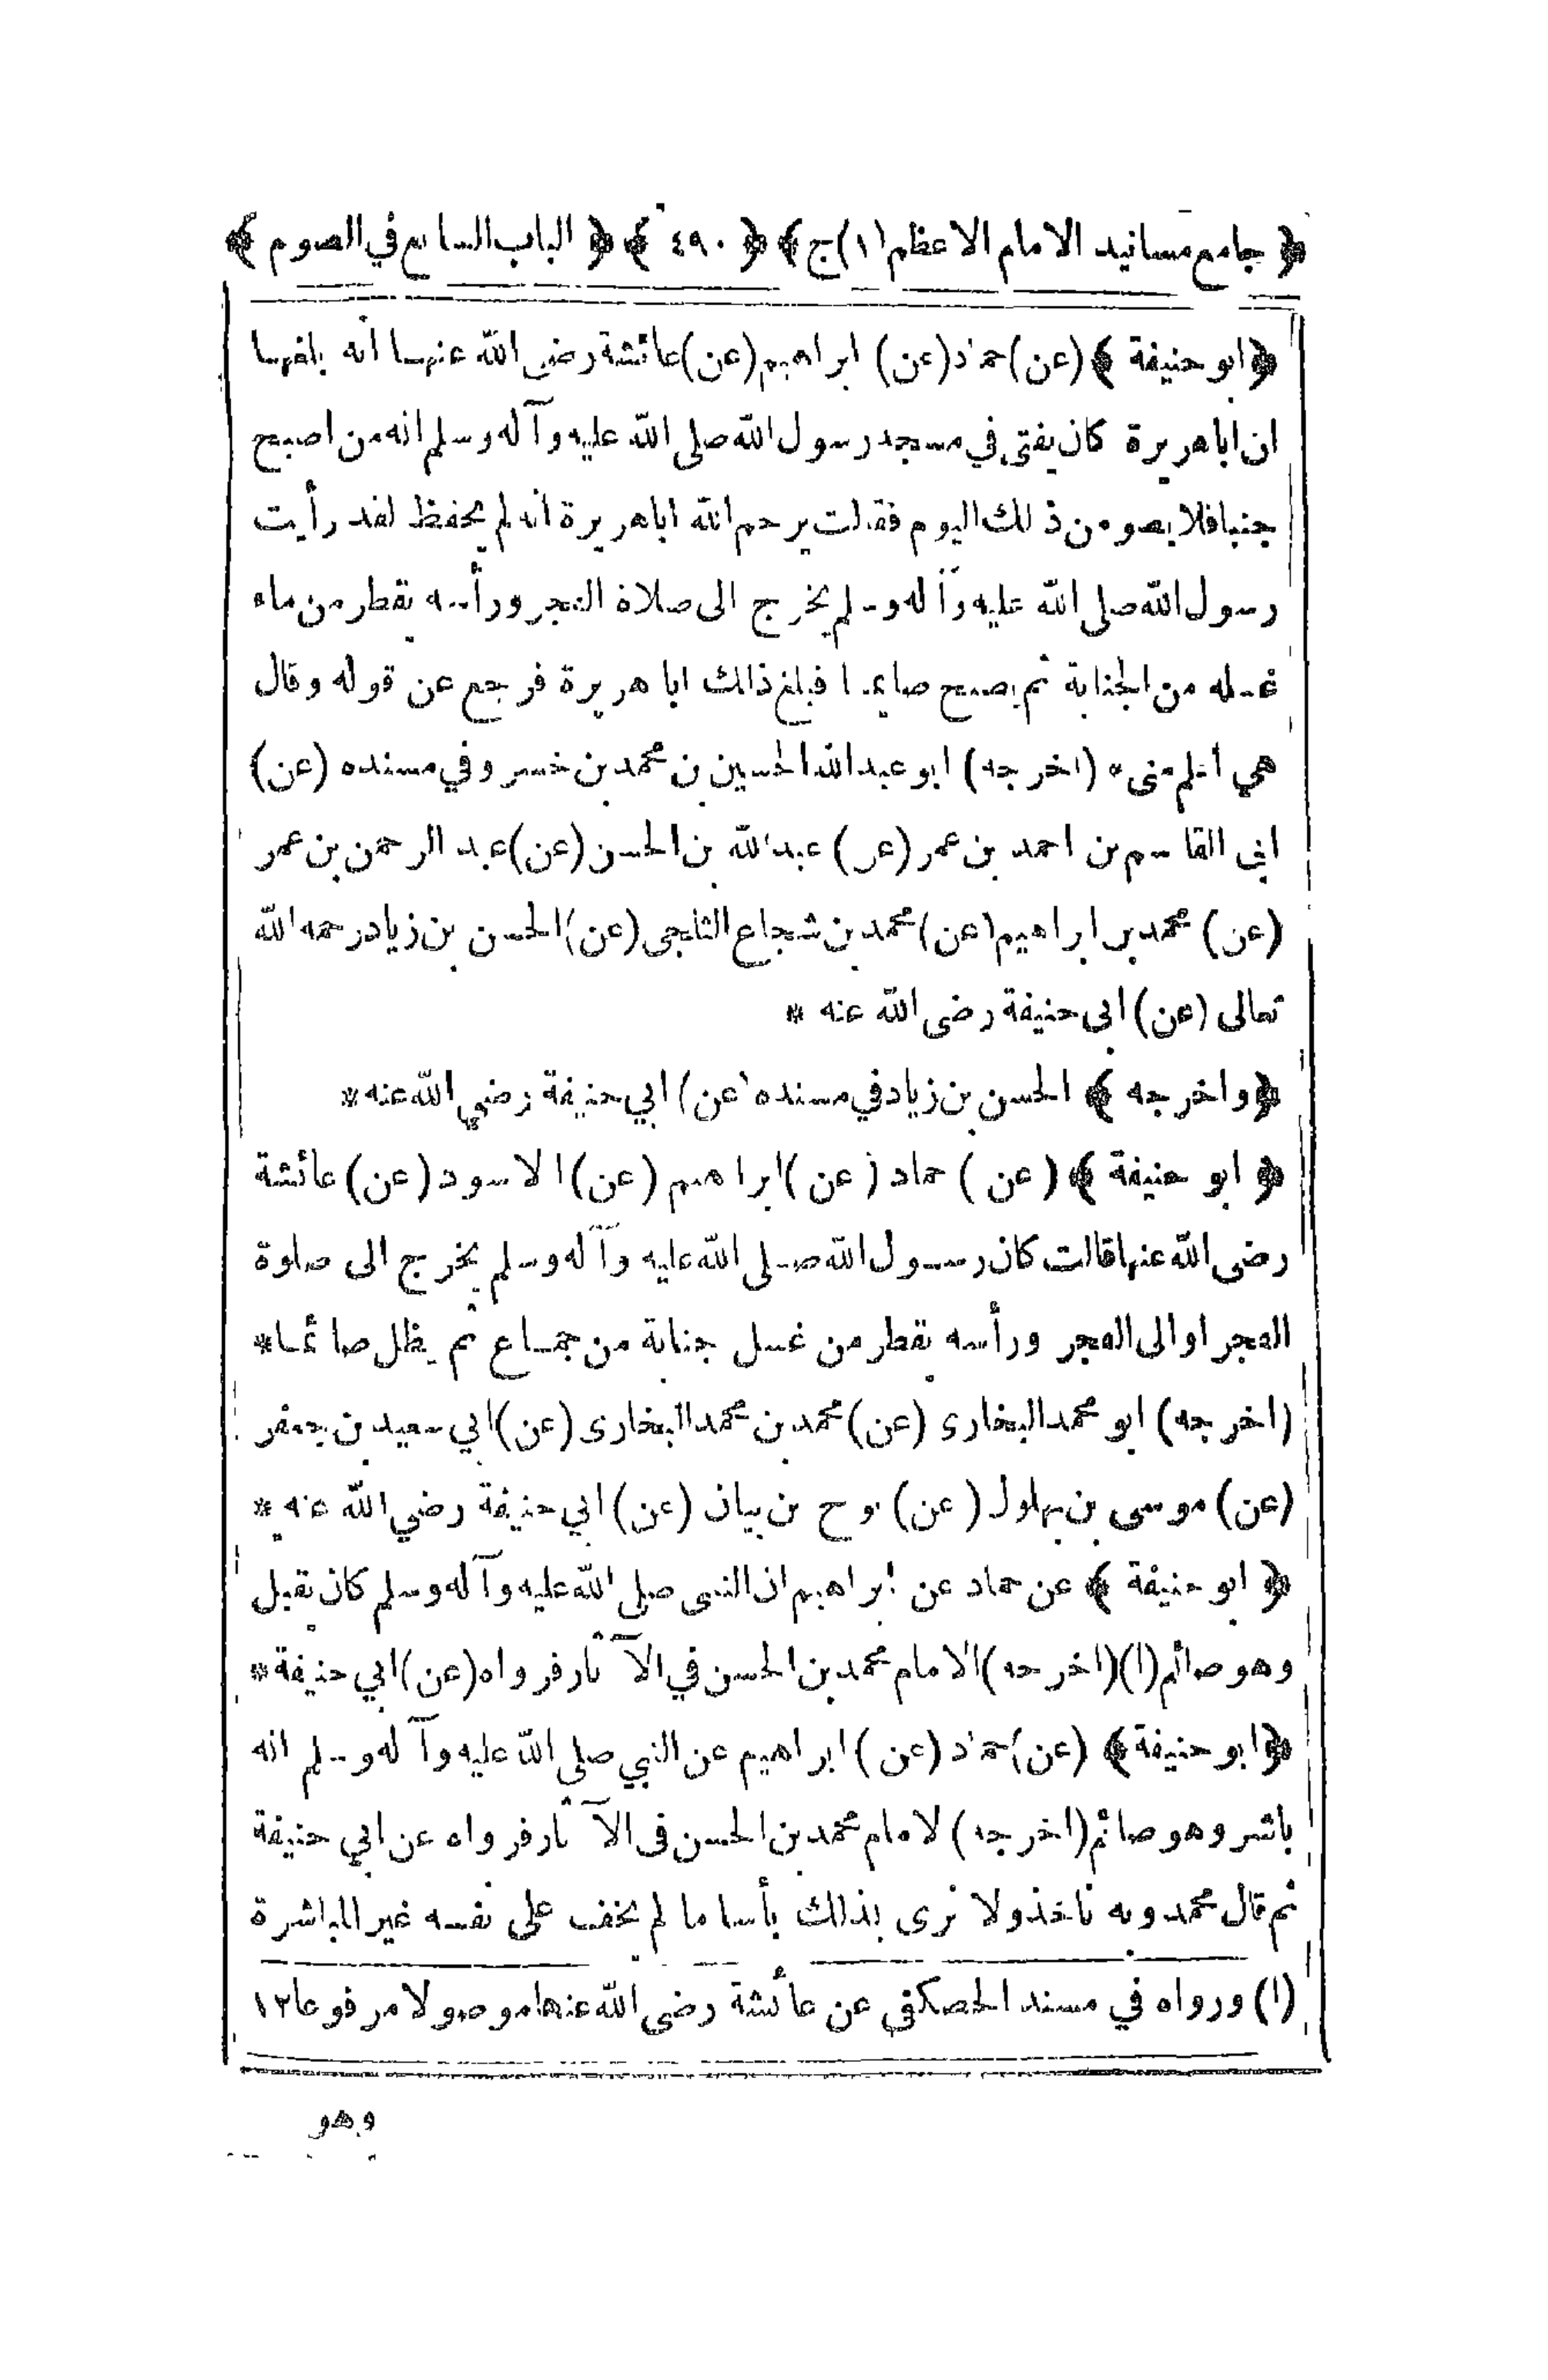 ﴿ جامع مسانيد الامام الاعظم (١) ج ﴾ ﴿ ٤٩٠ ﴾ ﴿ الباب السابع في الصوم ﴾
﴿ ابو حنيفة ﴾ (عن) حماد (عن) ابراهيم (عن) عائشة رضى الله عنهما انه بلغها
ان اباهريرة كان يفتى في مسجد رسول الله صلى الله عليه وآله وسلم انه من اصبح
جنبا فلا يصومن ذلك اليوم فقالت يرحم الله اباهريرة انه لم يحفظ لقد رأيت
رسول الله صلى الله عليه وآله وسلم يخرج الى صلاة الفجر ورأسه يقطر من ماء
غسله من الجنابة ثم يصبح صائما فبلغ ذلك اباهريرة فرجع عن قوله وقال
هي أعلم منى * (اخرجه) ابو عبدالله الحسين بن محمد بن خسرو في مسنده (عن)
ابي القاسم بن احمد بن عمر (عن) عبدالله بن الحسن (عن) عبد الرحمن بن عمر
(عن) محمد بن ابراهيم (عن) محمد بن شجاع الثلجى (عن) الحسن بن زياد رحمه الله
تعالى (عن) ابى حنيفة رضى الله عنه *
﴿ واخرجه ﴾ الحسن بن زياد في مسنده (عن) ابي حنيفة رضي الله عنه *
﴿ ابو حنيفة ﴾ (عن) حماد (عن) ابراهيم (عن) الاسود (عن) عائشة
رضى الله عنها قالت كان رسول الله صلى الله عليه وآله وسلم يخرج الى صلوة
الفجر او الى الفجر ورأسه يقطر من غسل جنابة من جماع ثم يظل صائما *
(اخرجه) ابو محمد البخارى (عن) محمد بن محمد البخارى (عن) ابي سعيد بن جعفر
(عن) موسى بن بهلول (عن) نوح بن بيان (عن) ابي حنيفة رضي الله عنه *
﴿ ابو حنيفة ﴾ عن حماد عن ابراهيم ان النبى صلى الله عليه وآله وسلم كان يقبل
وهو صائم (١) (اخرجه) الامام محمد بن الحسن في الآثار فرواه (عن) ابي حنيفة *
﴿ ابو حنيفة ﴾ (عن) حماد (عن) ابراهيم عن النبي صلى الله عليه وآله وسلم انه
باشر وهو صائم (اخرجه) لامام محمد بن الحسن فى الآثار فرواه عن ابي حنيفة
ثم قال محمد وبه ناخذ ولا نرى بذلك بأسا ما لم يخف على نفسه غير المباشرة
(١) ورواه في مسند الحصكفى عن عائشة رضى الله عنها موصولا مرفوعا ١٢
وهو